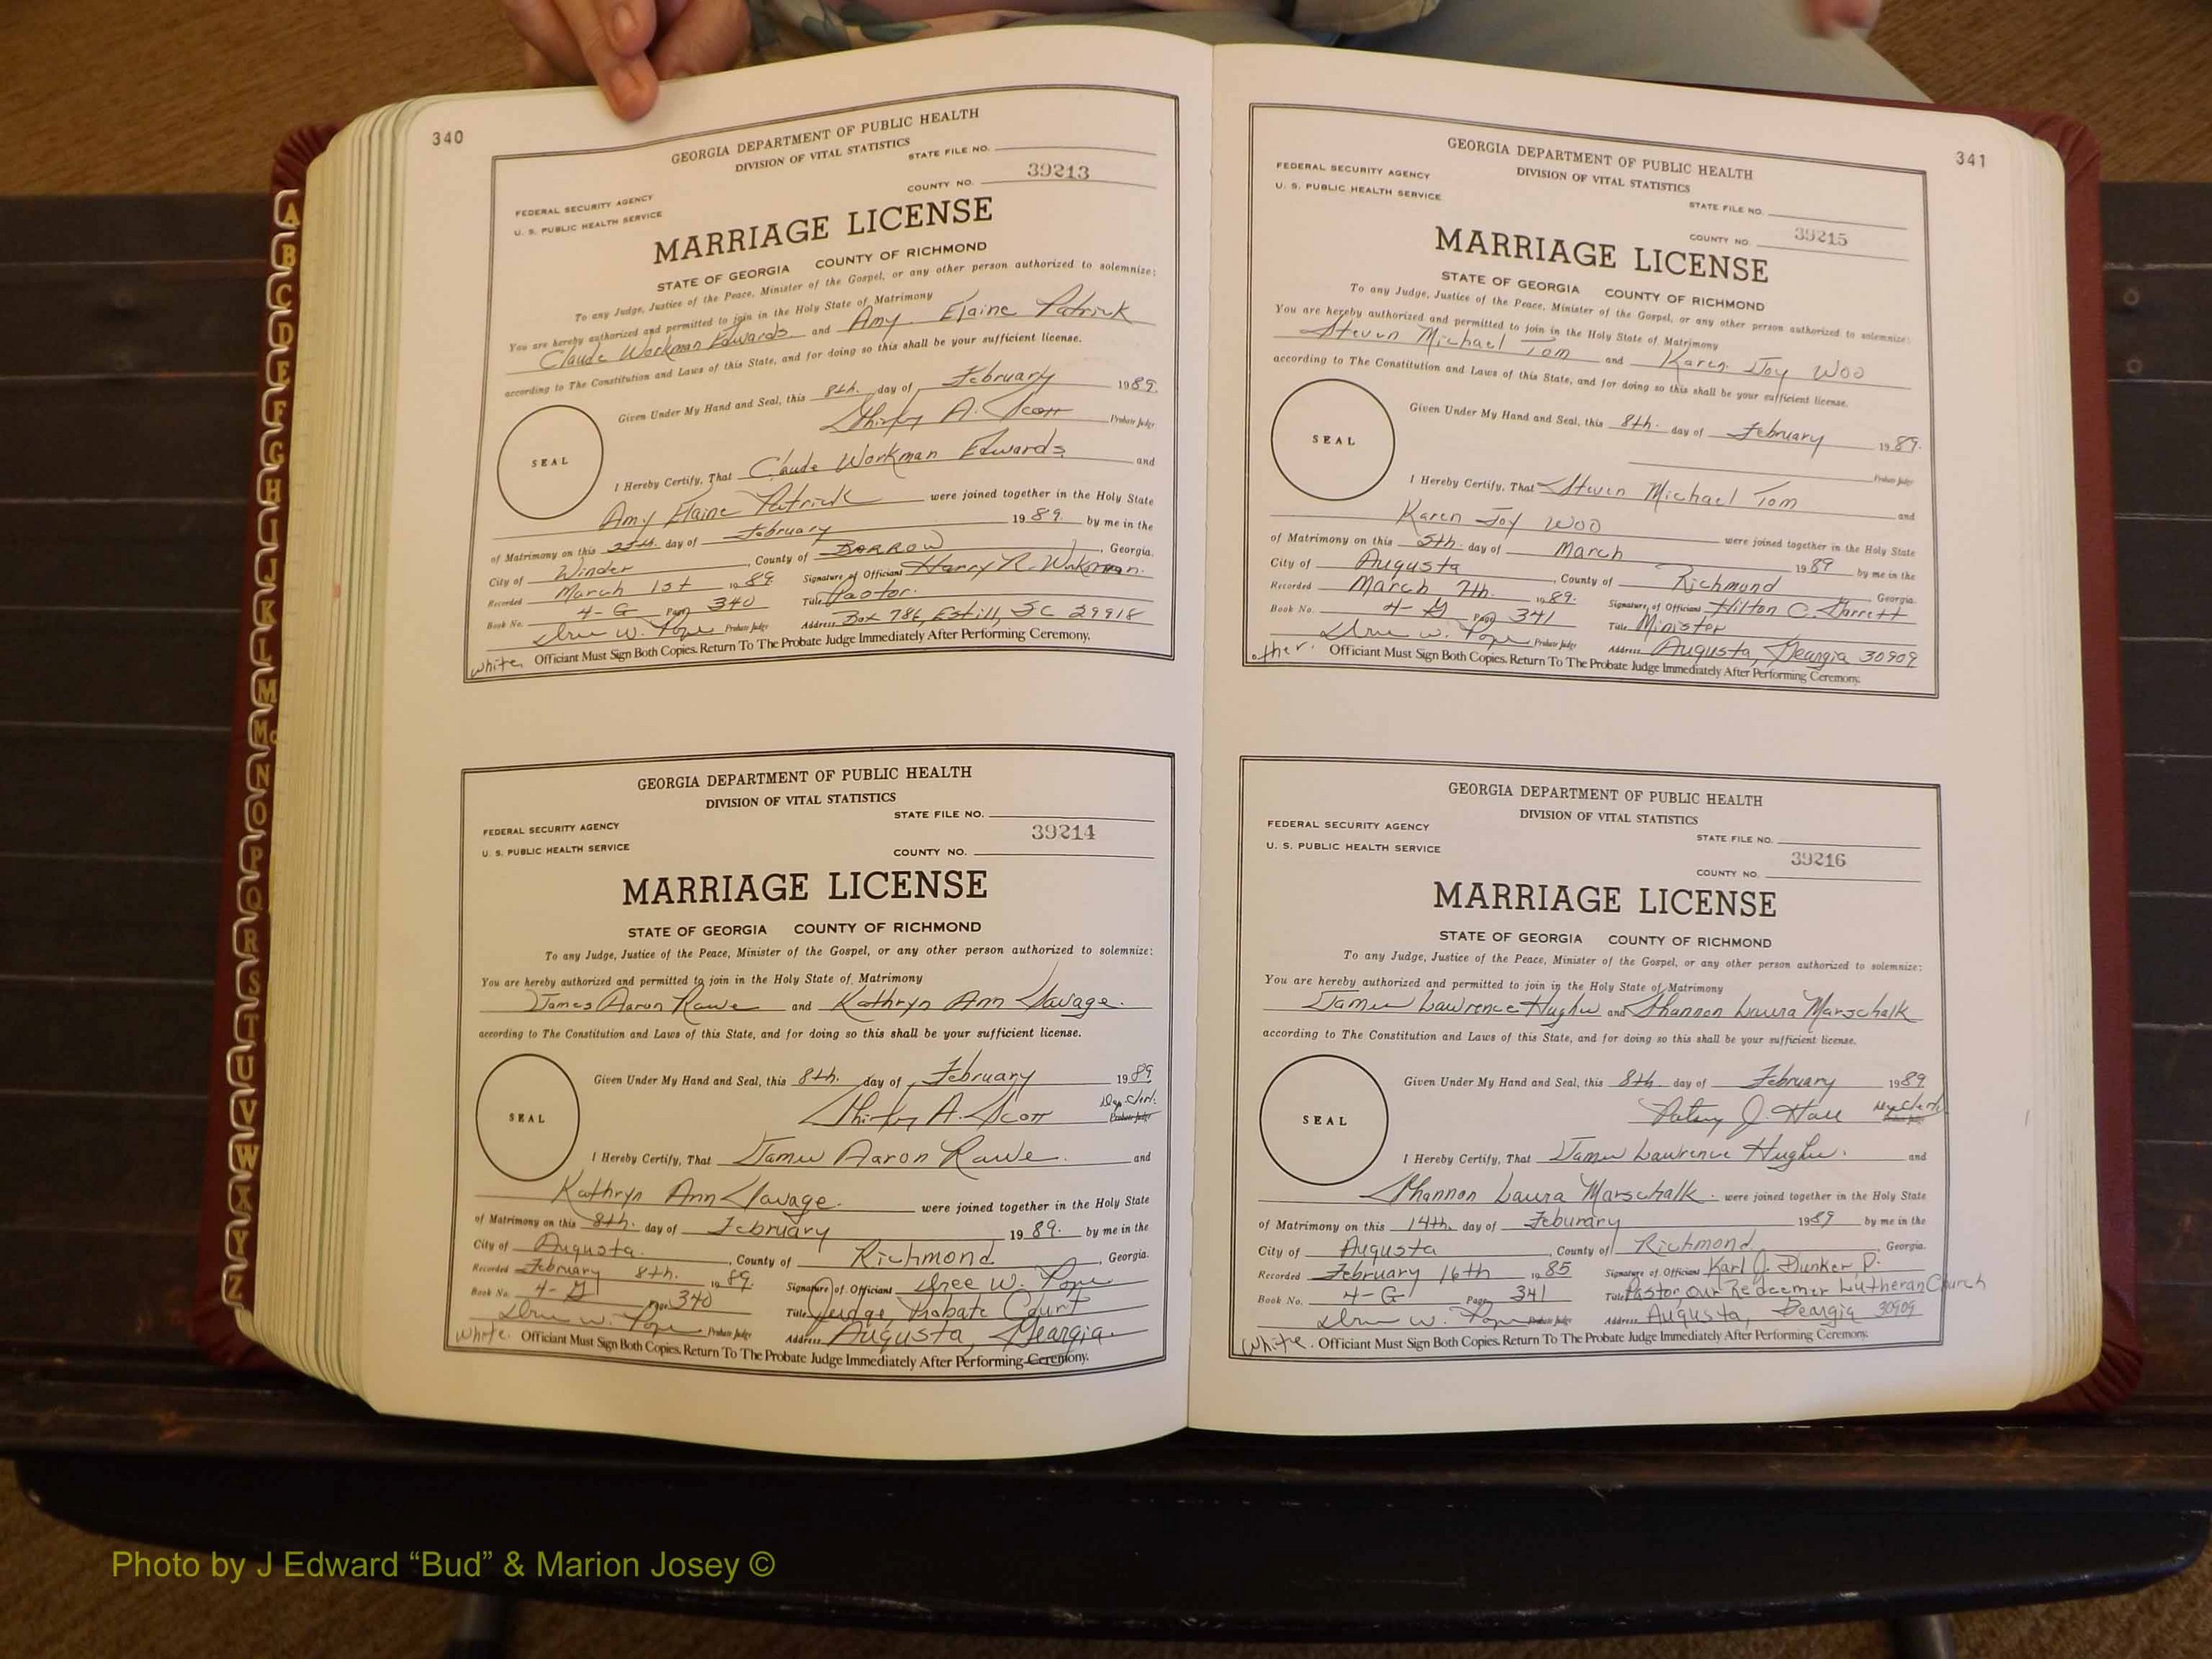 340
GEORGIA DEPARTMENT OF PUBLIC HEALTH
DIVISION OF VITAL STATISTICS
STATE FILE NO.
39213
COUNTY NO.
FEDERAL SECURITY AGENCY
U. S. PUBLIC HEALTH SERVICE
MARRIAGE LICENSE
STATE OF GEORGIA COUNTY OF RICHMOND
To any Judge, Justice of the Peace, Minister of the Gospel, or any other person authorized to solemnize:
You are hereby authorized and permitted to join in the Holy State of Matrimony
Claude Workman Edwards and Amy Elaine Patrick
according to The Constitution and Laws of this State, and for doing so this shall be your sufficient license.
Given Under My Hand and Seal, this 8th. day of February 1989.
Shirley A. Scott Probate Judge
SEAL
I Hereby Certify, That Claude Workman Edwards and
Amy Elaine Patrick were joined together in the Holy State
of Matrimony on this day of February 1989. by me in the
City of Winder, County of BARROW, Georgia.
Recorded March 1st 1989 Signature of Officiant Harry R. Workman.
Book No. 4-G Page 340 Title Pastor.
Probate Judge Address Box 786, Estill, SC 29918
white. Officiant Must Sign Both Copies. Return To The Probate Judge Immediately After Performing Ceremony.
GEORGIA DEPARTMENT OF PUBLIC HEALTH
DIVISION OF VITAL STATISTICS
STATE FILE NO.
39214
FEDERAL SECURITY AGENCY
U. S. PUBLIC HEALTH SERVICE
COUNTY NO.
MARRIAGE LICENSE
STATE OF GEORGIA COUNTY OF RICHMOND
To any Judge, Justice of the Peace, Minister of the Gospel, or any other person authorized to solemnize:
You are hereby authorized and permitted to join in the Holy State of Matrimony
James Aaron Rawe and Kathryn Ann Savage.
according to The Constitution and Laws of this State, and for doing so this shall be your sufficient license.
Given Under My Hand and Seal, this 8th. day of February 1989
Shirley A. Scott Dep Clerk. Probate Judge
SEAL
I Hereby Certify, That James Aaron Rawe. and
Kathryn Ann Savage. were joined together in the Holy State
of Matrimony on this 8th. day of February 1989. by me in the
City of Augusta., County of Richmond, Georgia.
Recorded February 8th. 1989. Signature of Officiant W. Pope
Book No. 4-G Page 340 Title Judge, Probate Court
W. Pope Probate Judge Address Augusta, Georgia.
white. Officiant Must Sign Both Copies. Return To The Probate Judge Immediately After Performing Ceremony.
341
GEORGIA DEPARTMENT OF PUBLIC HEALTH
DIVISION OF VITAL STATISTICS
FEDERAL SECURITY AGENCY
U. S. PUBLIC HEALTH SERVICE
STATE FILE NO.
COUNTY NO. 39215
MARRIAGE LICENSE
STATE OF GEORGIA COUNTY OF RICHMOND
To any Judge, Justice of the Peace, Minister of the Gospel, or any other person authorized to solemnize:
You are hereby authorized and permitted to join in the Holy State of Matrimony
Steven Michael Tom and Karen Joy Woo
according to The Constitution and Laws of this State, and for doing so this shall be your sufficient license.
Given Under My Hand and Seal, this 8th. day of February 1989.
Probate Judge
SEAL
I Hereby Certify, That Steven Michael Tom and
Karen Joy Woo were joined together in the Holy State
of Matrimony on this 5th. day of March 1989 by me in the
City of Augusta, County of Richmond Georgia.
Recorded March 7th. 1989. Signature of Officiant Hilton C. Garrett
Book No. 4-G Page 341 Title Minister
W. Pope Probate Judge Address Augusta, Georgia 30909
other. Officiant Must Sign Both Copies. Return To The Probate Judge Immediately After Performing Ceremony.
GEORGIA DEPARTMENT OF PUBLIC HEALTH
DIVISION OF VITAL STATISTICS
FEDERAL SECURITY AGENCY
U. S. PUBLIC HEALTH SERVICE
STATE FILE NO.
39216
COUNTY NO.
MARRIAGE LICENSE
STATE OF GEORGIA COUNTY OF RICHMOND
To any Judge, Justice of the Peace, Minister of the Gospel, or any other person authorized to solemnize:
You are hereby authorized and permitted to join in the Holy State of Matrimony
James Lawrence Hughes and Shannon Laura Marschalk
according to The Constitution and Laws of this State, and for doing so this shall be your sufficient license.
Given Under My Hand and Seal, this 8th day of February 1989
Patsy J. Hall Dep Clerk Probate Judge
SEAL
I Hereby Certify, That James Lawrence Hughes. and
Shannon Laura Marschalk. were joined together in the Holy State
of Matrimony on this 14th. day of Feburary 1989 by me in the
City of Augusta, County of Richmond, Georgia.
Recorded February 16th 1985 Signature of Officiant Karl J. Dunker, P.
Book No. 4-G Page 341 Title Pastor, Our Redeemer Lutheran Church
W. Pope Probate Judge Address Augusta, Georgia 30909
White. Officiant Must Sign Both Copies. Return To The Probate Judge Immediately After Performing Ceremony.
A
B
C
D
E
F
G
H
I
J
K
L
M
Mc
N
O
P
Q
R
S
T
U
V
W
X
Y
Z
Photo by J Edward “Bud” & Marion Josey ©